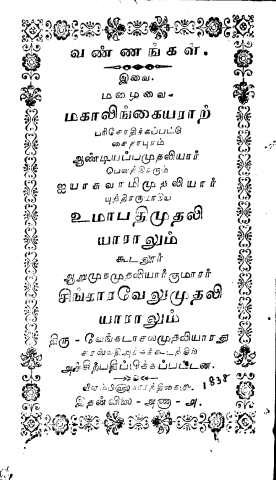 வண்ணங்கள்.
இவை
மழைவை-
மகாலிங்கையராற்
பரிசோதிக்கப்பட்டு
சைதாபுரம்
ஆண்டியப்பமுதலியார்
பௌத்திரரும்
ஐயாசுவாமிமுதலியார்
புத்திரருமாகிய
உமாபதிமுதலி
யாராலும்
கூடலூர்
ஆறுமுகமுதலியார்குமாரர்
சிங்காரவேலுமுதலி
யாராலும்
திரு-வேங்கடாசலமுதலியாரது
சரஸ்வதிஅச்சுக்கூடத்தில்
அச்சிற்பதிப்பிக்கப்பட்டன.
1838
இதன்விலை-அணா-அ.